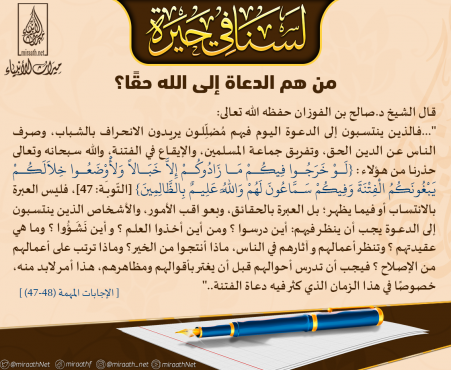 لسنا في حيرة
miraath.Net
ميراث الأنبياء
من هم الدعاة إلى الله حقًا؟
قال الشيخ د.صالح بن الفوزان حفظه الله تعالى:
"...فالذين ينتسبون إلى الدعوة اليوم فيهم مُضلِّلون يريدون الانحراف بالشباب، وصرف
الناس عن الدين الحق، وتفريق جماعة المسلمين، والإيقاع في الفتنة، والله سبحانه وتعالى
حذرنا من هؤلاء: {لَوْ خَرَجُوا فِيكُمْ مَا زَادُوكُمْ إِلاَّ خَبَالاً وَلأَوْضَعُوا خِلاَلَكُمْ
يَبْغُونَكُمُ الْفِتْنَةَ وَفِيكُمْ سَمَّاعُونَ لَهُمْ وَاللَّهُ عَلِيمٌ بِالظَّالِمِينَ} [التوبة: 47]، فليس العبرة
بالانتساب أو فيما يظهر؛ بل العبرة بالحقائق، وبعواقب الأمور، والأشخاص الذين ينتسبون
إلى الدعوة يجب أن ينظر فيهم: أين درسوا؟ ومن أين أخذوا العلم؟ وأين نَشَؤُوا؟ وما هي
عقيدتهم؟ وتنظر أعمالهم و آثارهم في الناس، ماذا أنتجوا من الخير؟ وماذا ترتب على أعمالهم
من الإصلاح؟ فيجب أن تدرس أحوالهم قبل أن يغتر بأقوالهم ومظاهرهم، هذا أمر لابد منه،
خصوصًا في هذا الزمان الذي كثر فيه دعاة الفتنة.."
[الإجابات المهمة (47-48)]
@miraathNet miraathf @miraath_net miraathNet